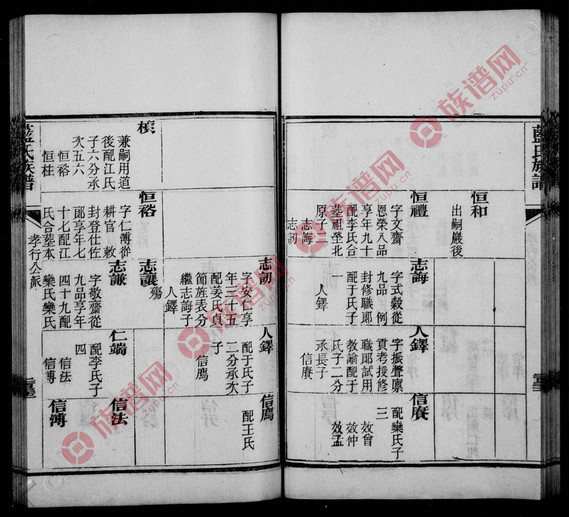 藍氏族譜
恒和
出嗣嚴後
恒禮
字文齋
恩榮八品
享年九十
配李氏合
葬祖塋北
原子二
志誨
志訒
志誨
字式穀從
九品 例
封修職郎
配于氏子
一
人鐸
人鐸
字振聲廪
貢考授修
職郎試用
教諭配于
氏子二分
承長子
信賡
信賡
配欒氏子
三
效曾
效仲
效孟
志訒
字安仁享
年三十五
配姜氏貞
節旌表分
繼志誨子
人鐸
人鐸
配于氏子
二分承次
子
信鷹
信鷹
配王氏
兼嗣用道
後配江氏
子六分承
次五六
恒裕
恒桂
恒裕
字仁溥從
耕官 敕
封登仕佐
郎享年七
十七配江
氏合葬本
志讓
殤
志謙
字敬齋從
九品享年
四十九配
欒氏欒氏
仁端
配李氏子
四
信法
信溥
信法
信溥
藍氏族譜
孝行公派
族谱网
zupu.cn